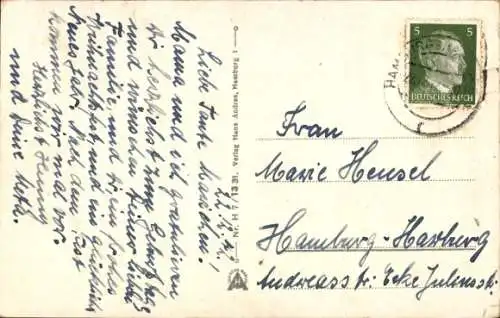 22.12.42.
Liebe Tante Mariechen!
Mama und ich gratulieren
Dir herzlichst zum Geburtstag
und wünschen Deiner lieben
Familie und Dir ein frohes
Weihnachtsfest und ein glücklich.
Neues Jahr. Nach dem Fest
kommen wir mal vor.
Herzlichst Henny
und Deine Meta.
Nr. H 7/1331. Verlag Hans Andres, Hamburg 1
5 5
DEUTSCHES REICH
HAM
Frau
Marie Hensel
Hamburg-Harburg
Andreasstr. Ecke Juliusstr.